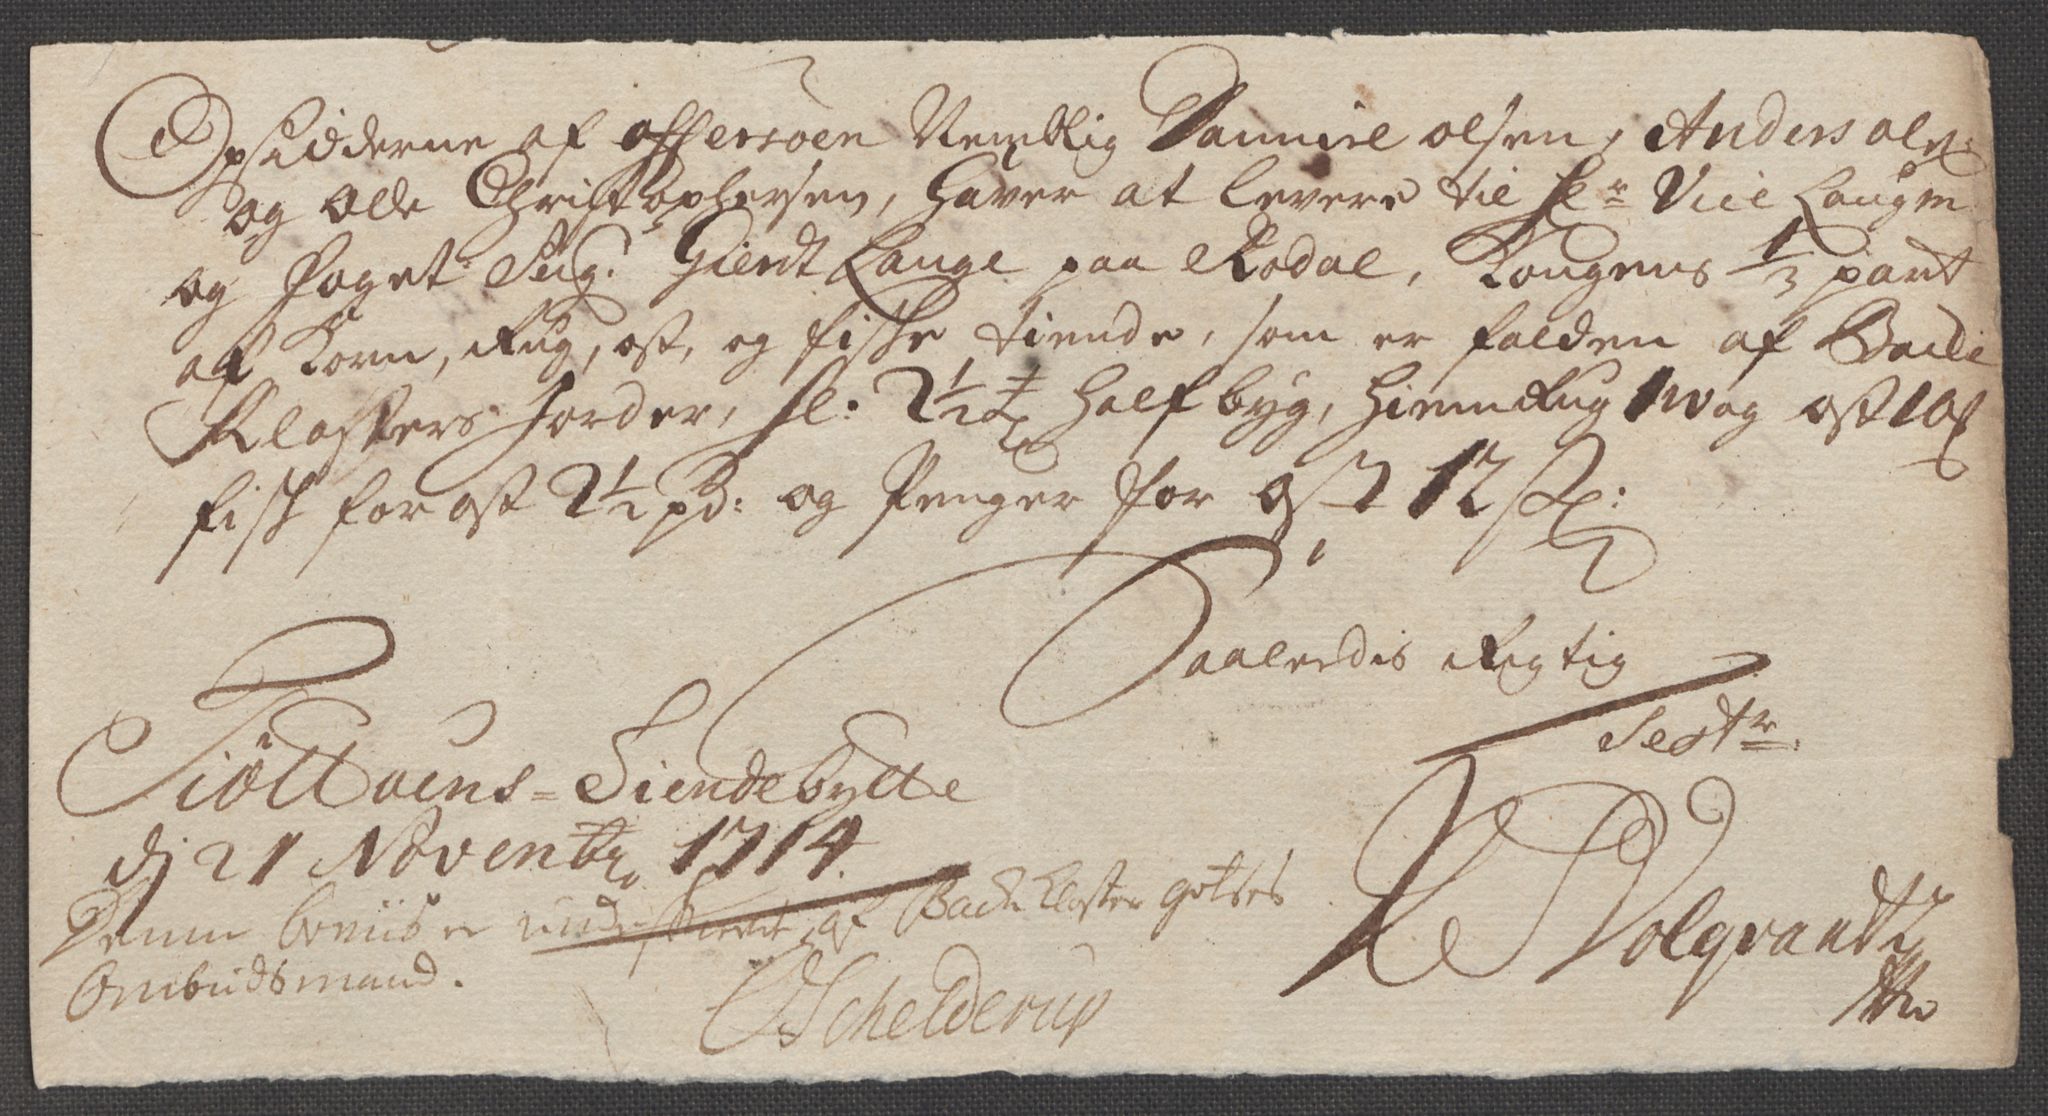 Opsidderne af offersøen Nemblig Daniel olsen, Anders ols:
og Olle Christophersen, haver at levere til Sr Vice Laugm
og Foget Sug. Gierdt Lange paa Rodal, Kongens 1/3 part
af Korn, Rug, ost, og fiske tiende, som er falden af Backe
Klosters Jorder, Sl: 2½ half byg, hiem Rug 1 wog ost 10
fisk for ost 2½ pd: og Penger for ost 12
Saaledis Rigtig
Test
Tiøttøens Tiendebytte
dj 21 Novembr 1714
Denne bevis er underskrevet af Backe Kloster Gotses
Ombudsmand.
Schelderup
Volqvardtz